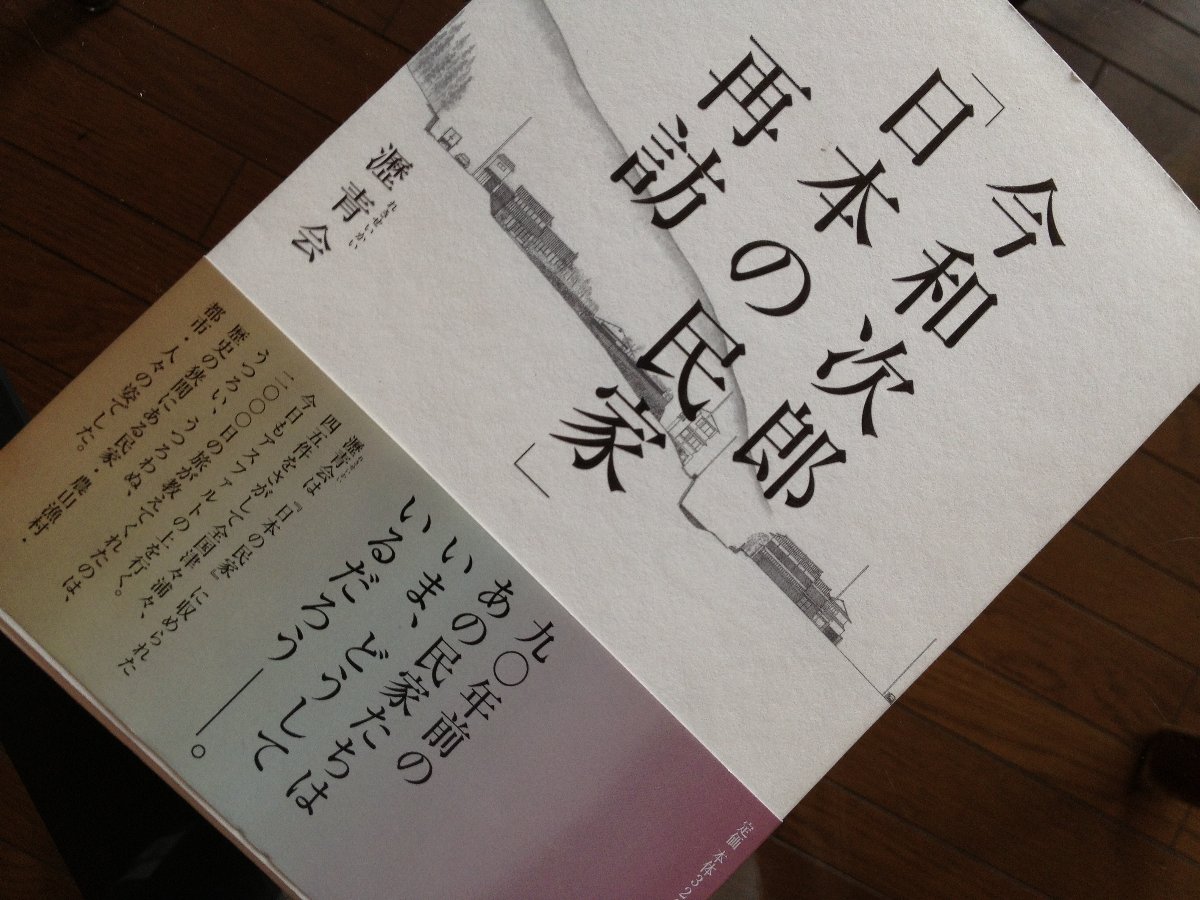 今和次郎
「日本の民家」
再訪
瀝青会
れきせいかい
九〇年前の
あの民家たちは
いま、どうして
いるだろう――。
瀝青会は『日本の民家』に収められた
れきせいかい
四五件をさがして全国津々浦々、
今日もアスファルトの上を行く。
二〇〇〇日の旅が教えてくれたのは、
うつろい、うつろわぬ、
歴史の狭間にある民家・農山漁村・
都市・人々の姿でした。
定価 本体32